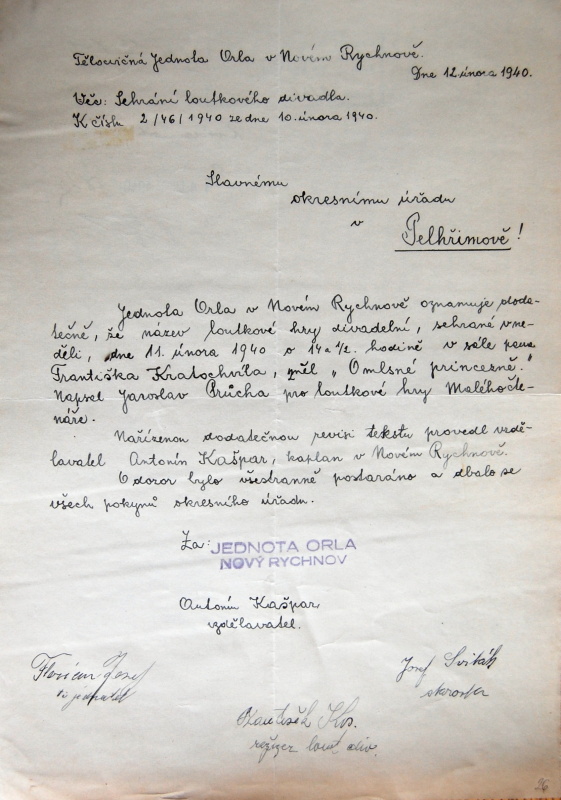 Tělocvičná Jednota Orla v Novém Rychnově.
Dne 12. února 1940.
Věc: Sehrání loutkového divadla.
K číslu 2/46/1940 ze dne 10. února 1940.
Slavnému
okresnímu úřadu
v
Pelhřimově!
Jednota Orla v Novém Rychnově oznamuje doda-
tečně, že název loutkové hry divadelní, sehrané v ne-
děli, dne 11. února 1940 o 14 a 1/2. hodině v sále pana
Františka Kratochvíla, měl „Omlsné princezně."
Napsel Jaroslav Průcha pro loutkové hry Malého čte-
náře.
Nařízenou dodatečnou revisi tekstu provedl vzdě-
lavatel Antonín Kašpar, kaplan v Novém Rychnově.
O dozor bylo všestranně postaráno a dbalo se
všech pokynů okresního úřadu.
Za: JEDNOTA ORLA
NOVÝ RYCHNOV
Antonín Kašpar,
vzdělavatel.
Florian Josef
jednatel
Josef Sviták
starosta
František
režizer lout. div.
26